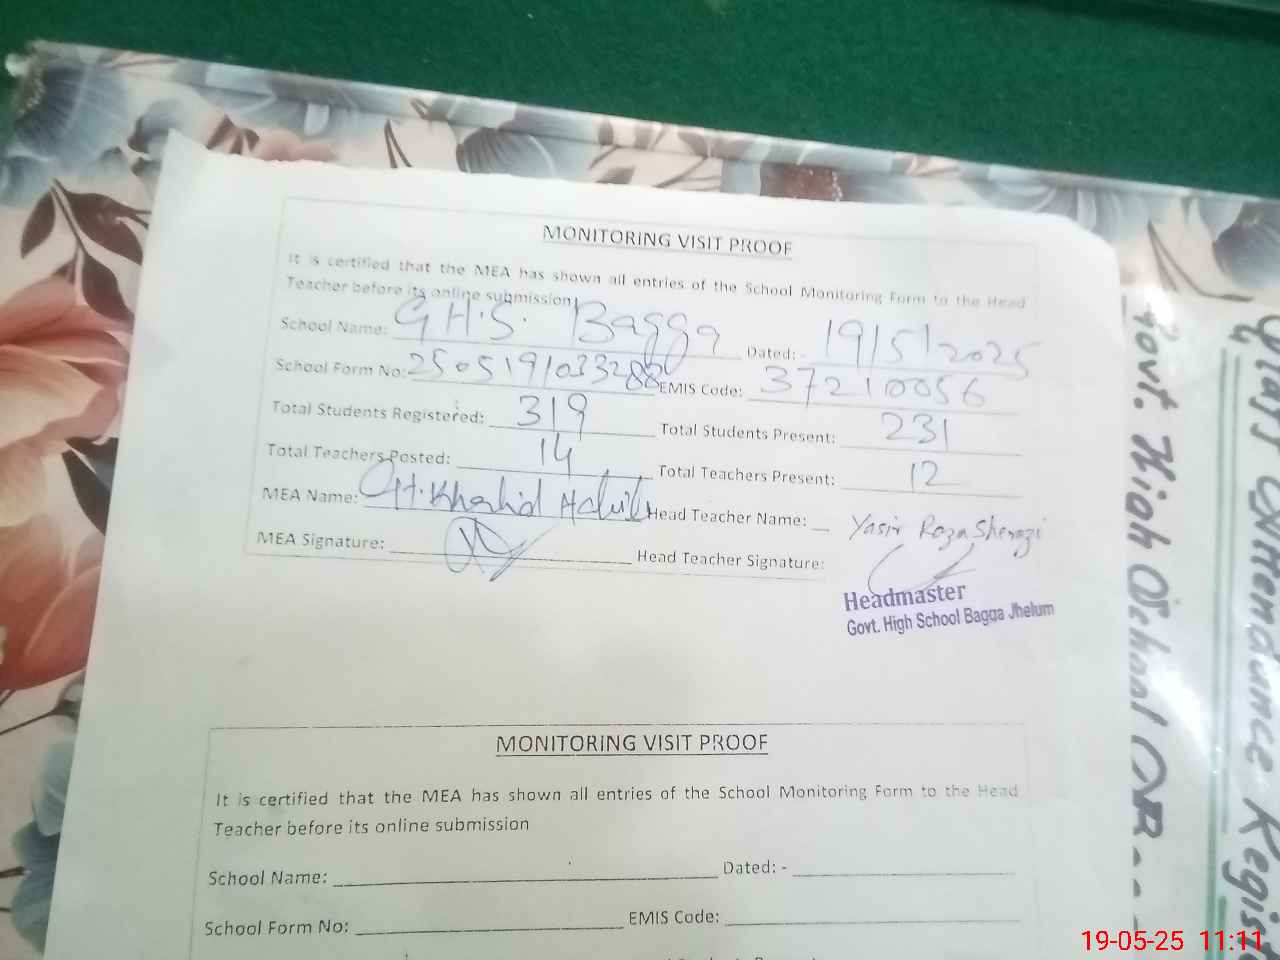 MONITORING VISIT PROOF
It is certified that the MEA has shown all entries of the School Monitoring Form to the Head
Teacher before its online submission
School Name: G.H.S. Bagga Dated: - 19/5/2025
School Form No: 2505191033288 EMIS Code: 37210056
Total Students Registered: 319 Total Students Present: 231
Total Teachers Posted: 14 Total Teachers Present: 12
MEA Name: CH. Khalid Head Teacher Name: Yasir Raza Sherazi
MEA Signature: Head Teacher Signature:
Headmaster
Govt. High School Bagga Jhelum
MONITORING VISIT PROOF
It is certified that the MEA has shown all entries of the School Monitoring Form to the Head
Teacher before its online submission
School Name: Dated: -
School Form No: EMIS Code:
Govt. High School
Staff Attendance Regist
19-05-25 11:11